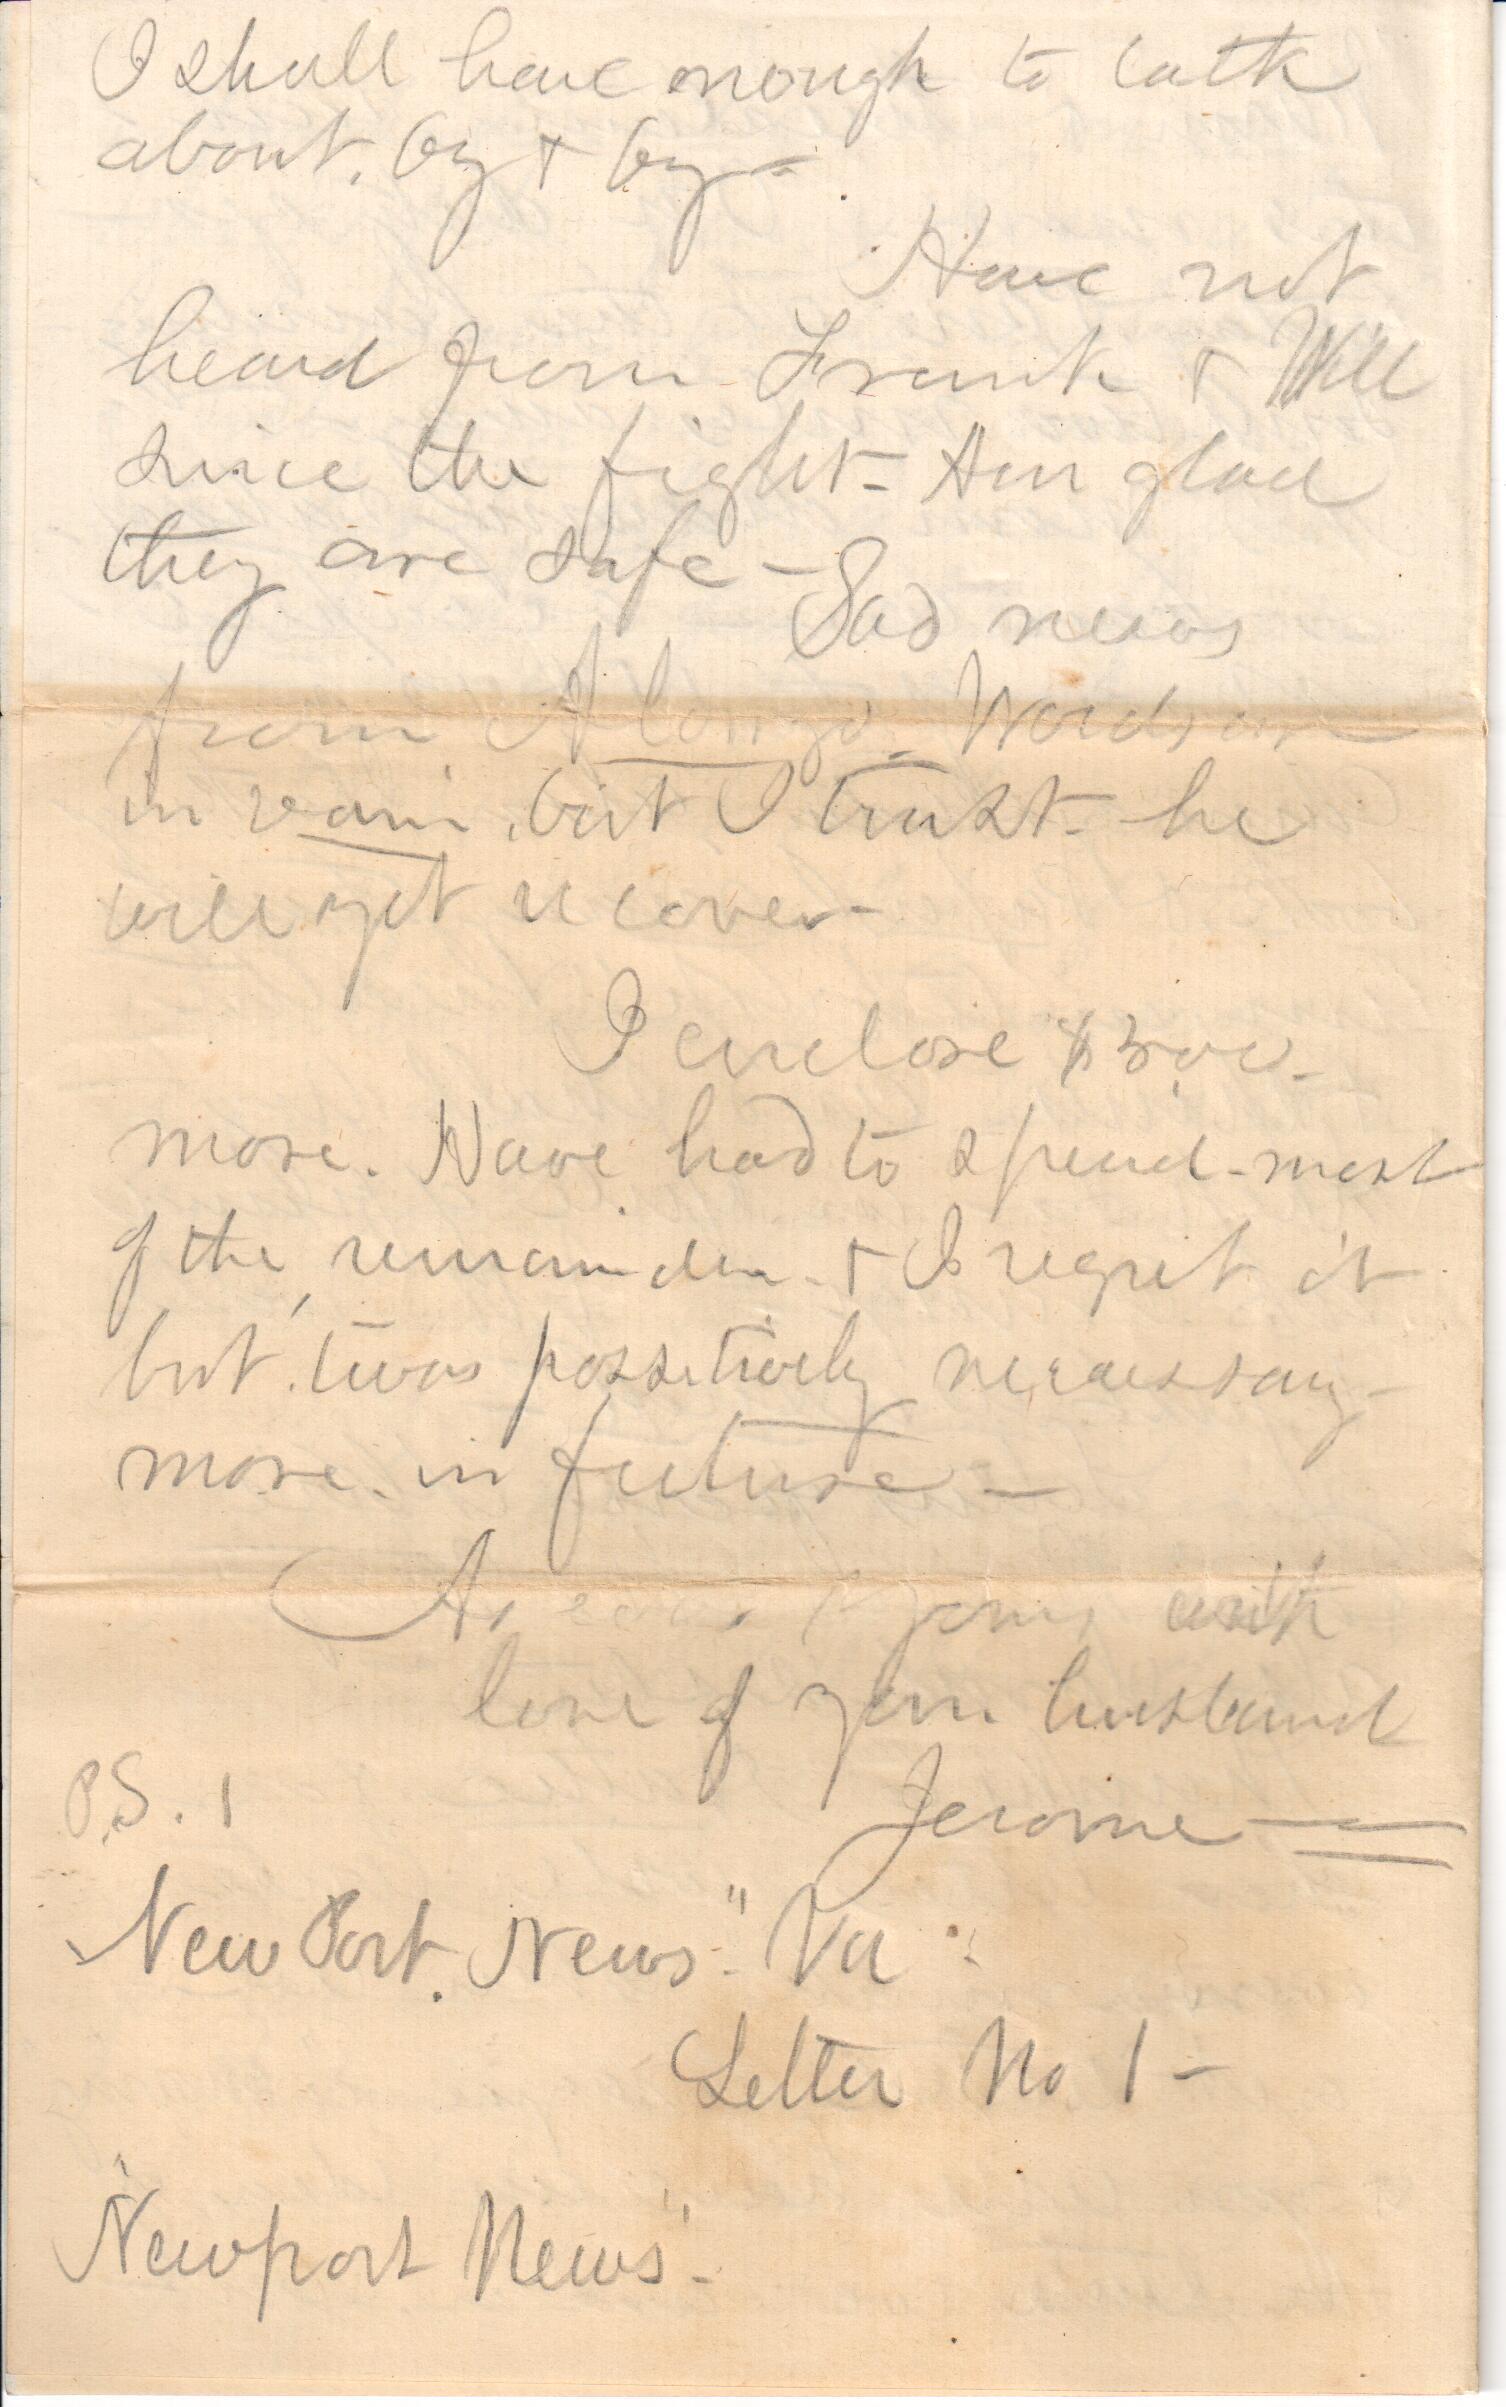 I shall have enough to talk
about. by & by -
Have not
heard from Frank & Will
since the fight - Am glad
they are safe -
Sad news
from Alonzo. Words are
in vain, but I trust he
will yet recover -
I enclose $3.00 -
more. Have had to spend most
of the remainder - & I regret it
but 'twas possitively necessary -
more in future -
As ever yours with
love of your husband
Jerome
P.S. 1
"New Port. News" - Va
Letter No 1 -
"Newport News" -